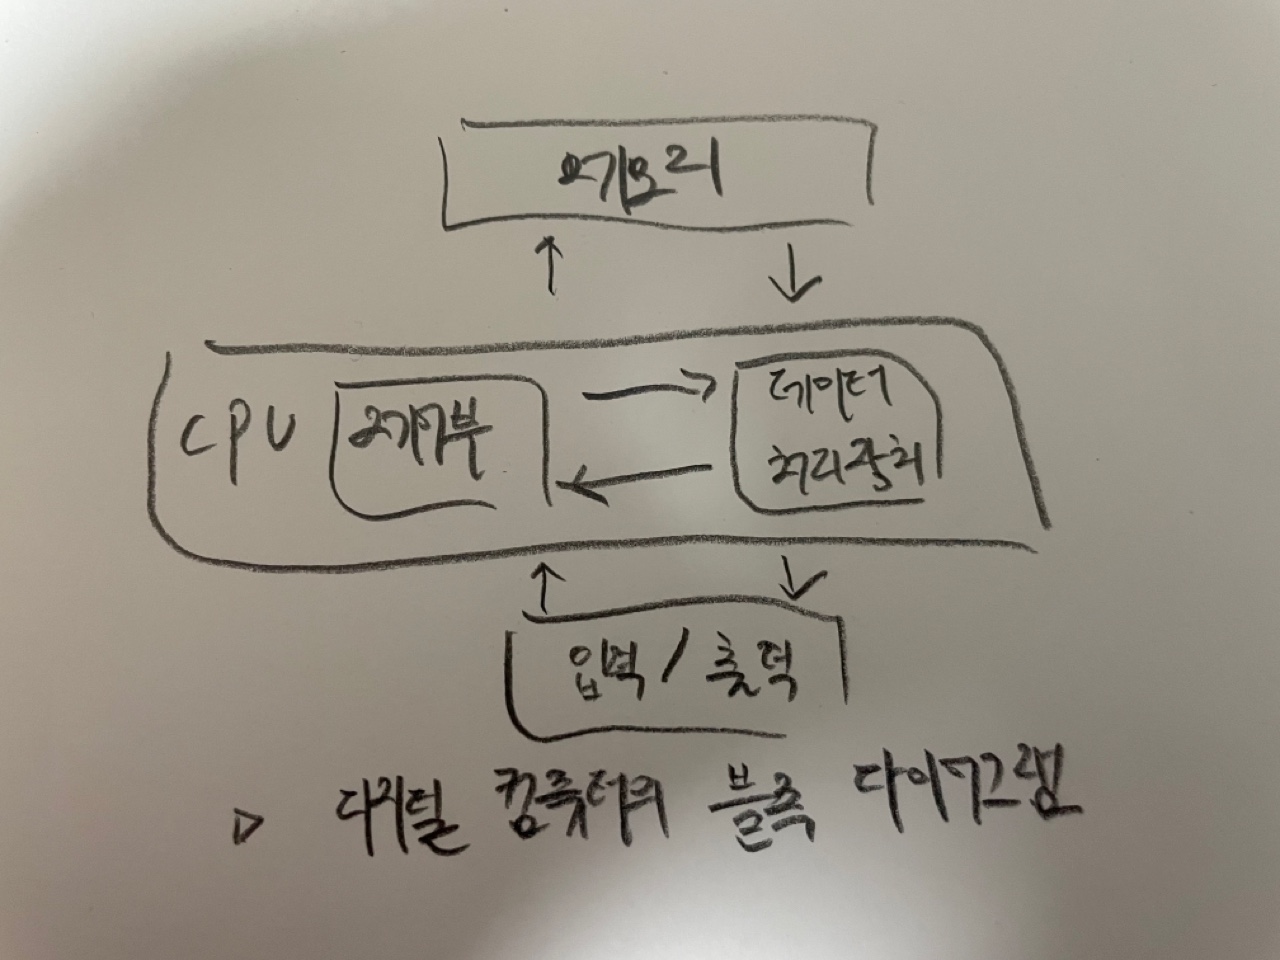 메모리
CPU 제어부 데이터
처리장치
입력 / 출력
▷ 디지털 컴퓨터의 블록 다이어그램